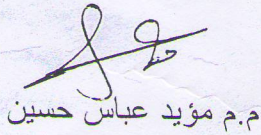 م.م مؤيد عباس حسين